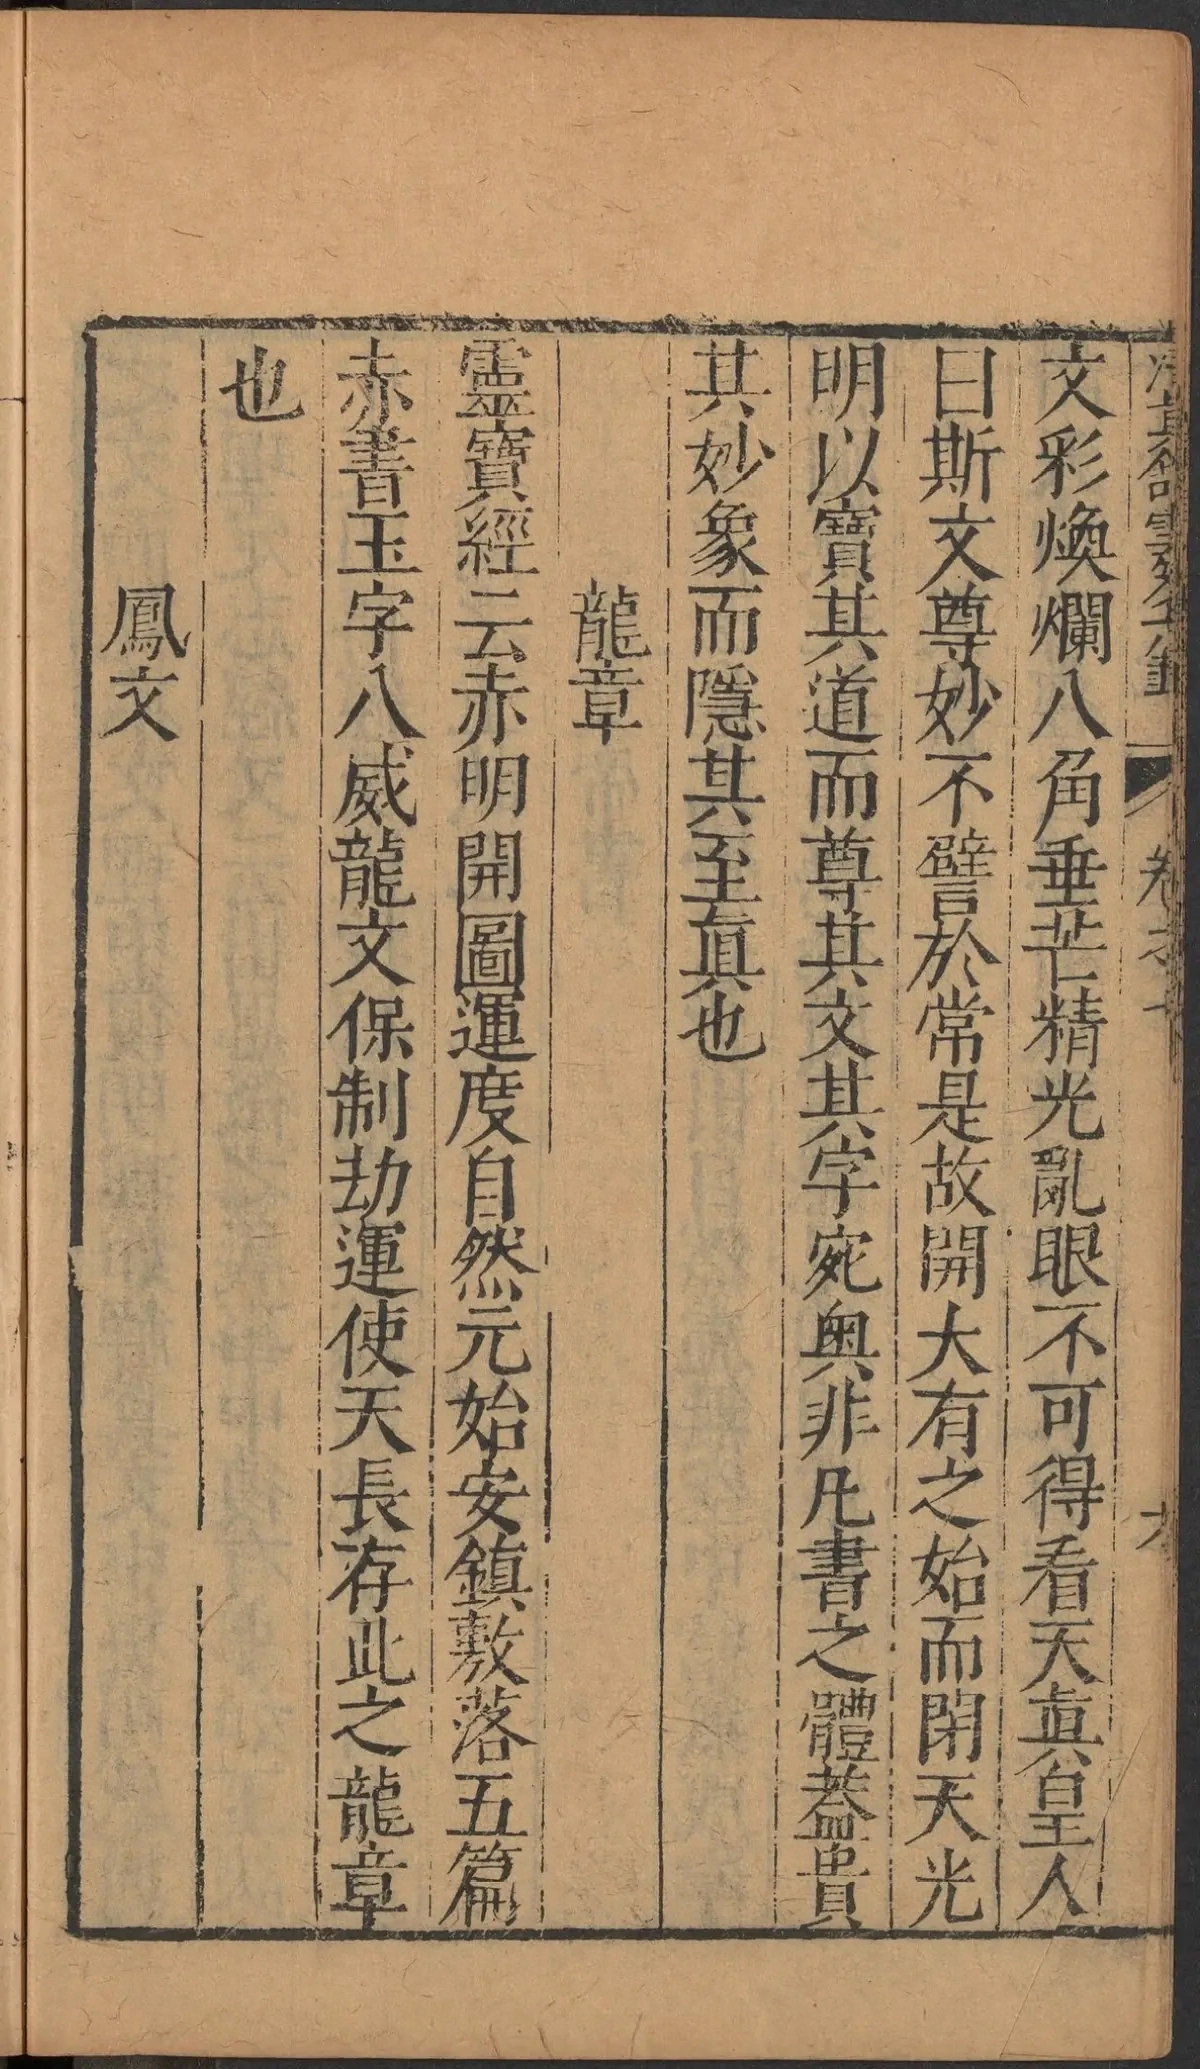 卷之七
文彩煥爛八角垂芒精光亂眼不可得看天眞皇人
曰斯文尊妙不譬於常是故開大有之始而閉天光
明以寶其道而尊其文其字宛奥非凡書之體葢貴
其妙象而隱其至眞也
龍章
靈寶經云赤明開圖運度自然元始安鎮敷落五篇
赤書玉字八威龍文保制劫運使天長存此之龍章
也
鳳文